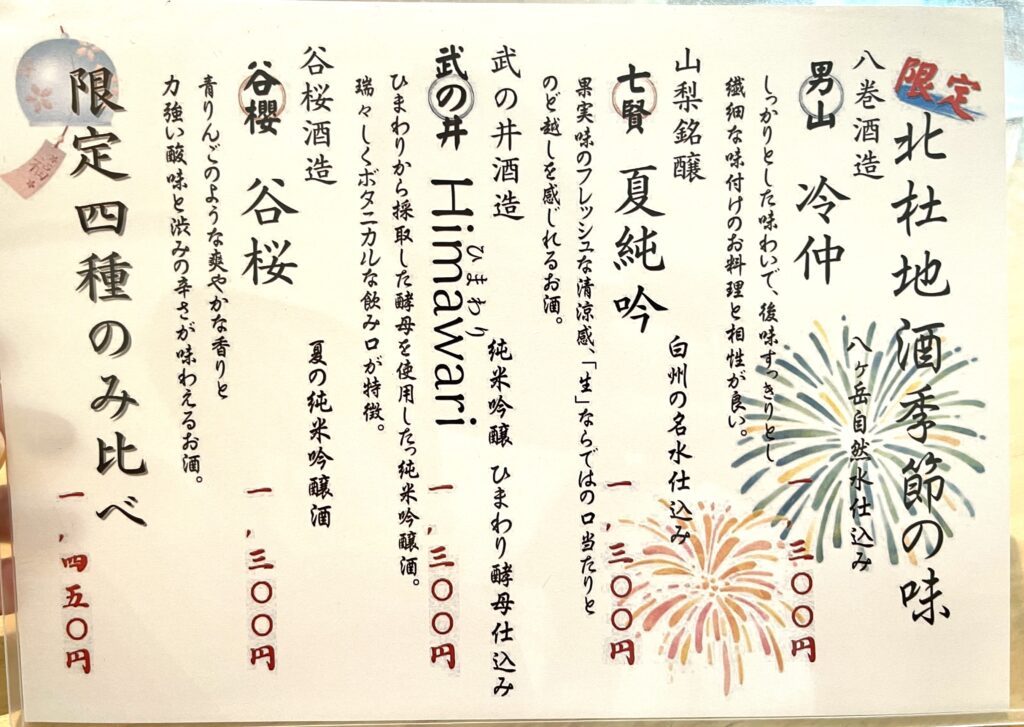 限定
北杜地酒季節の味
八巻酒造
八ヶ岳自然水仕込み
男山 冷仲
一,三〇〇円
しっかりとした味わいで、後味すっきりとし
繊細な味付けのお料理と相性が良い。
山梨銘醸
白州の名水仕込み
七賢 夏純吟
一,三〇〇円
果実味のフレッシュな清涼感、「生」ならではの口当たりと
のど越しを感じれるお酒。
武の井酒造
純米吟醸 ひまわり酵母仕込み
武の井 Himawari
ひまわり
一,三〇〇円
ひまわりから採取した酵母を使用したっ純米吟醸酒。
瑞々しくボタニカルな飲み口が特徴。
谷桜酒造
夏の純米吟醸酒
谷櫻 谷桜
一,三〇〇円
青りんごのような爽やかな香りと
力強い酸味と渋みの辛さが味わえるお酒。
限定四種のみ比べ
一,四五〇円
福